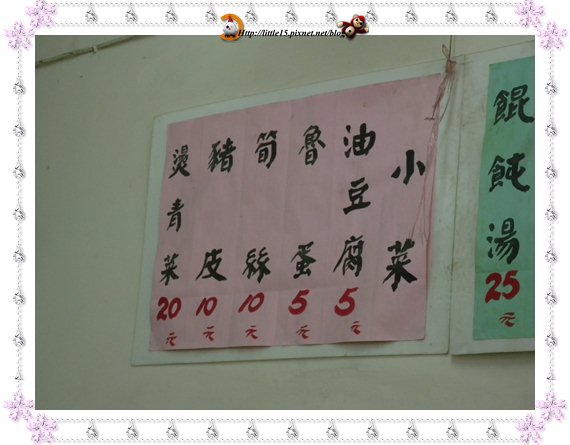 Http://little15.pixnet.net/blog
小菜
油豆腐 5元
魯蛋 5元
筍絲 10元
豬皮 10元
燙青菜 20元
餛飩湯 25元